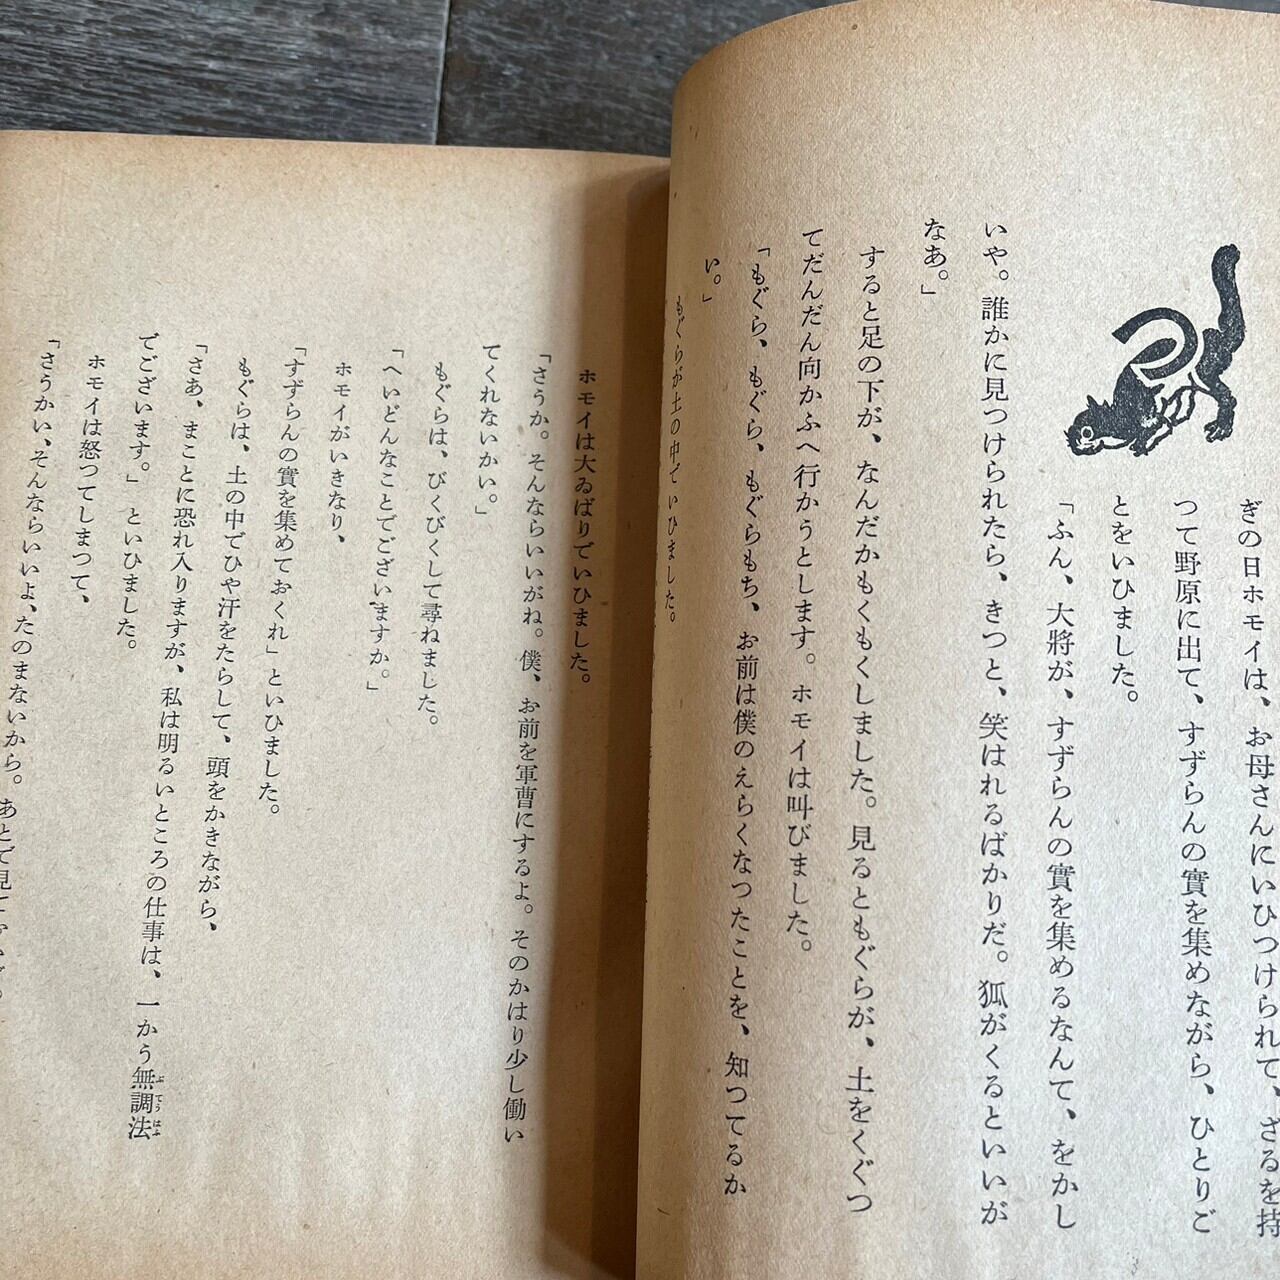 ぎの日ホモイは、お母さんにいひつけられて、ざるを持
つて野原に出て、すずらんの實を集めながら、ひとりご
とをいひました。
「ふん、大將が、すずらんの實を集めるなんて、をかし
いや。誰かに見つけられたら、きつと、笑はれるばかりだ。狐がくるといいが
なあ。」
すると足の下が、なんだかもくもくしました。見るともぐらが、土をくぐつ
てだんだん向かふへ行かうとします。ホモイは叫びました。
「もぐら、もぐら、もぐらもち、お前は僕のえらくなつたことを、知つてるか
い。」
もぐらが土の中でいひました。
ホモイは大ゐばりでいひました。
「さうか。そんならいいがね。僕、お前を軍曹にするよ。そのかはり少し働い
てくれないかい。」
もぐらは、びくびくして尋ねました。
「へいどんなことでございますか。」
ホモイがいきなり、
「すずらんの實を集めておくれ」といひました。
もぐらは、土の中でひや汗をたらして、頭をかきながら、
「さあ、まことに恐れ入りますが、私は明るいところの仕事は、一かう無調法
ぶてうはふ
でございます。」といひました。
ホモイは怒つてしまつて、
「さうかい、そんならいいよ、たのまないから。あとで見て